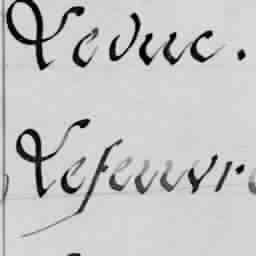 Leduc.
Lefeuvre